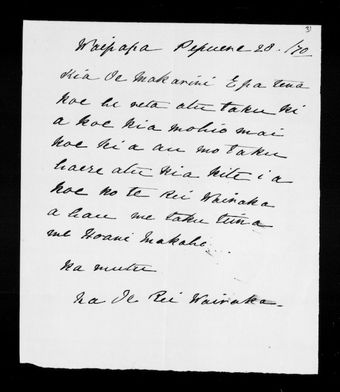 31
Waipapa Pepuere 28./70
Kia Te Makarini E pa tena
koe he reta atu taku ki
a koe kia mohio mai
koe ki a au mo taku
haere atu kia kite i a
koe ko te Rei Wairaka
a hau me taku tuina
me Hoani Makaho
Ka mutu
Na Te Rei Wairaka.